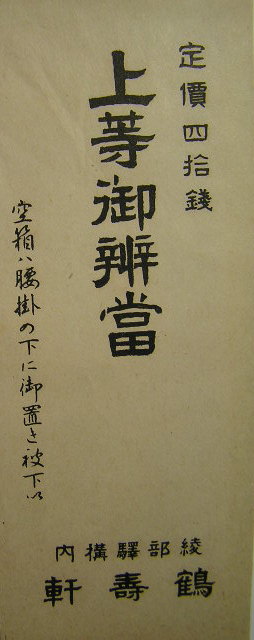 定價四拾錢
上等御辨當
空箱ハ腰掛の下に御置き被下い
綾部驛構内
鶴壽軒